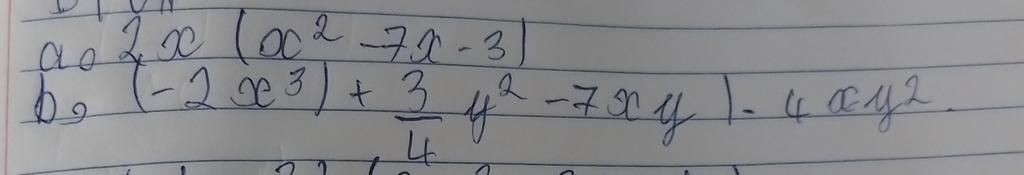 a, 2x (x² - 7x - 3)
b, (-2x³) + 3/4 y² - 7xy). 4xy²